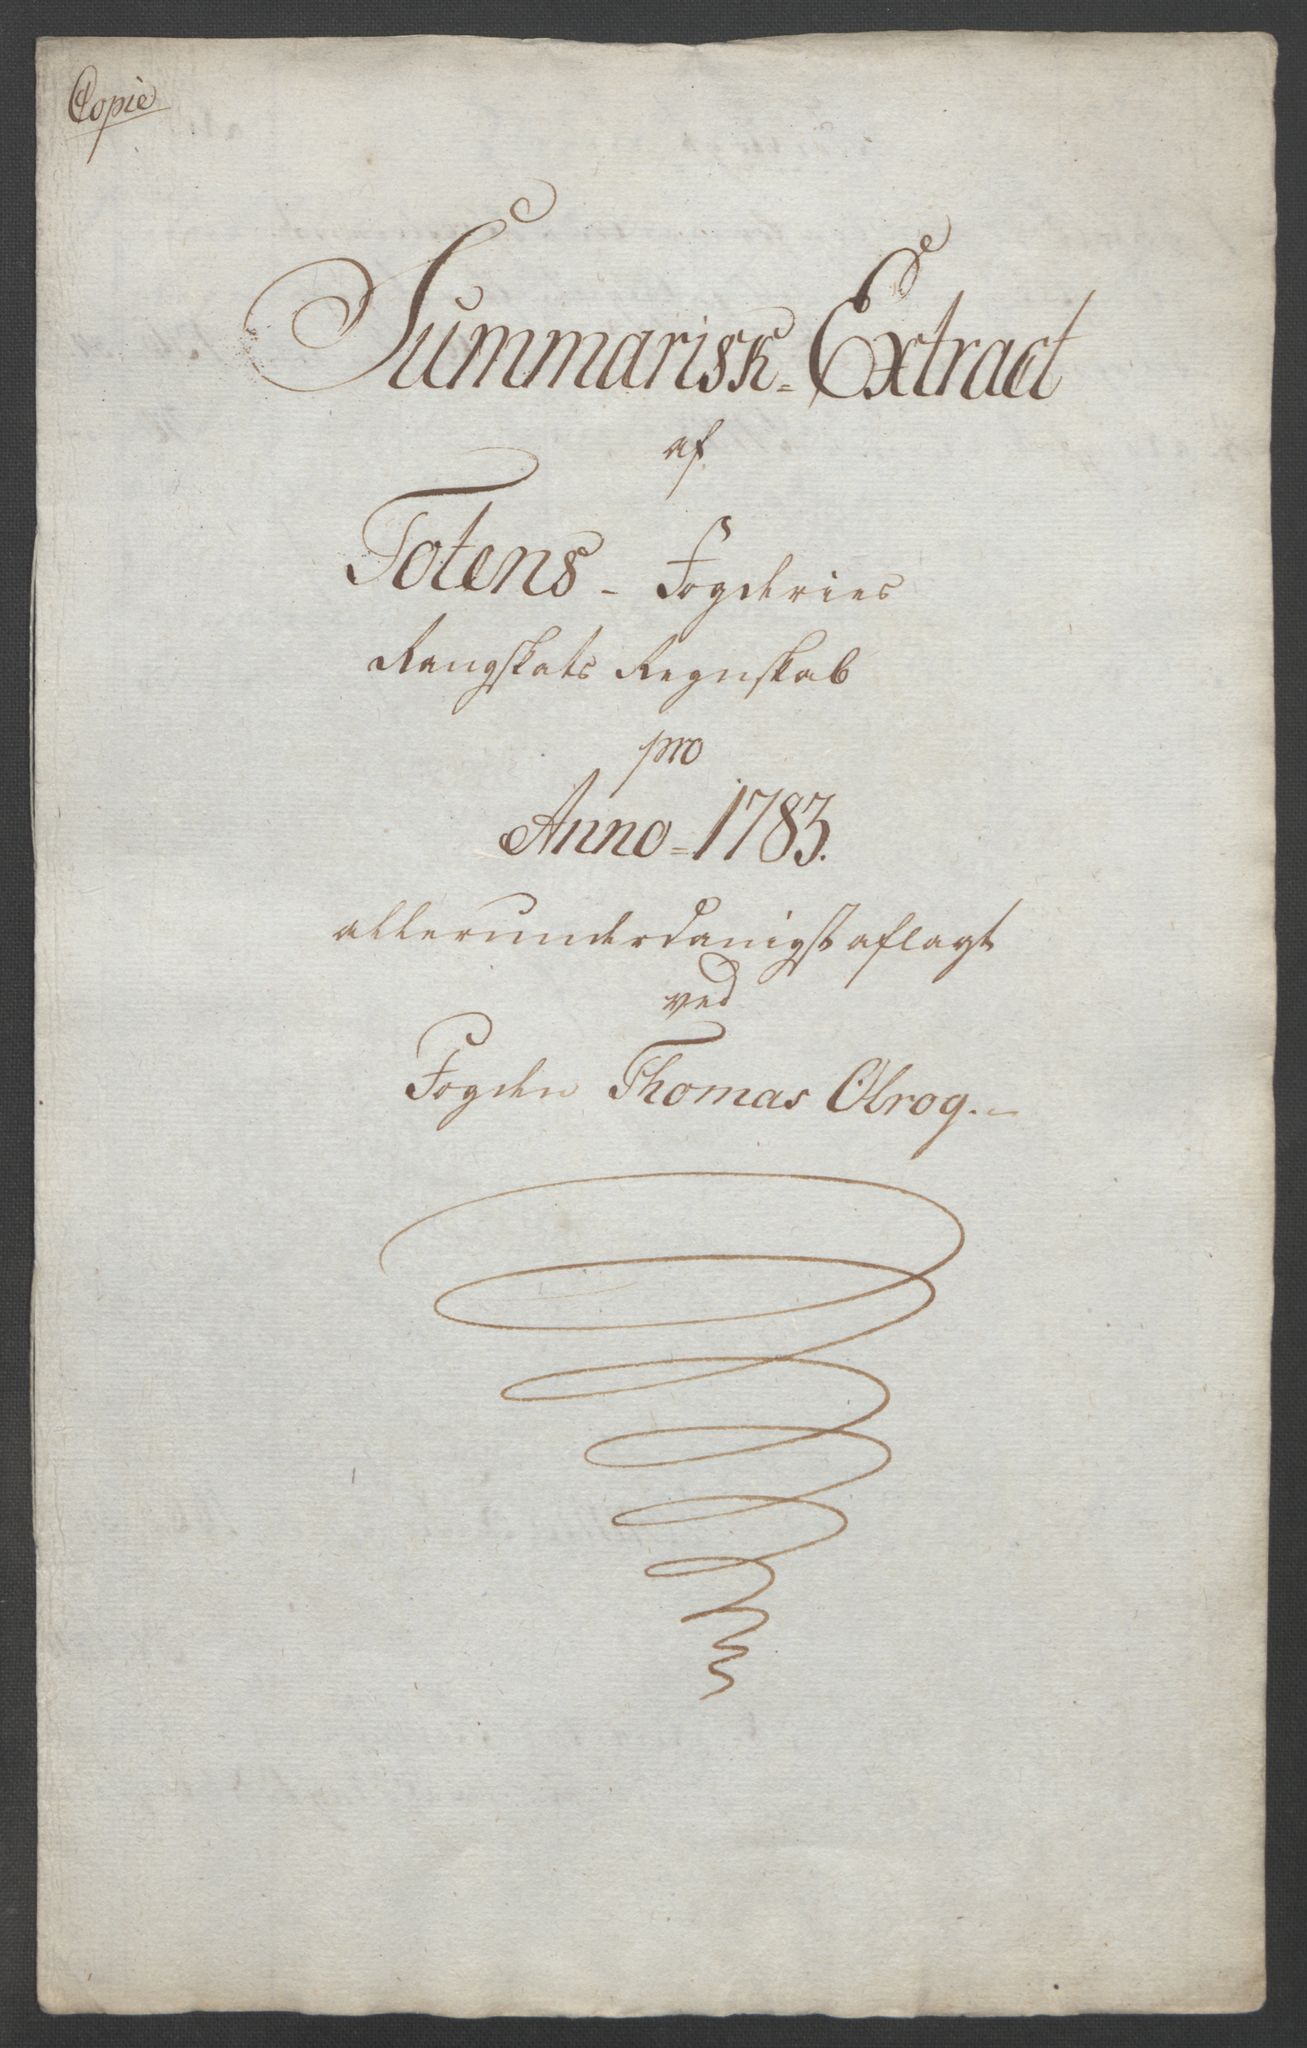 Copie
Summarisk=Extract
af
Totens - Fogderies
Rangskats Regnskab
pro
Anno=1783.
allerunderdanigst aflagt
ved
Fogden Thomas Olrog.-